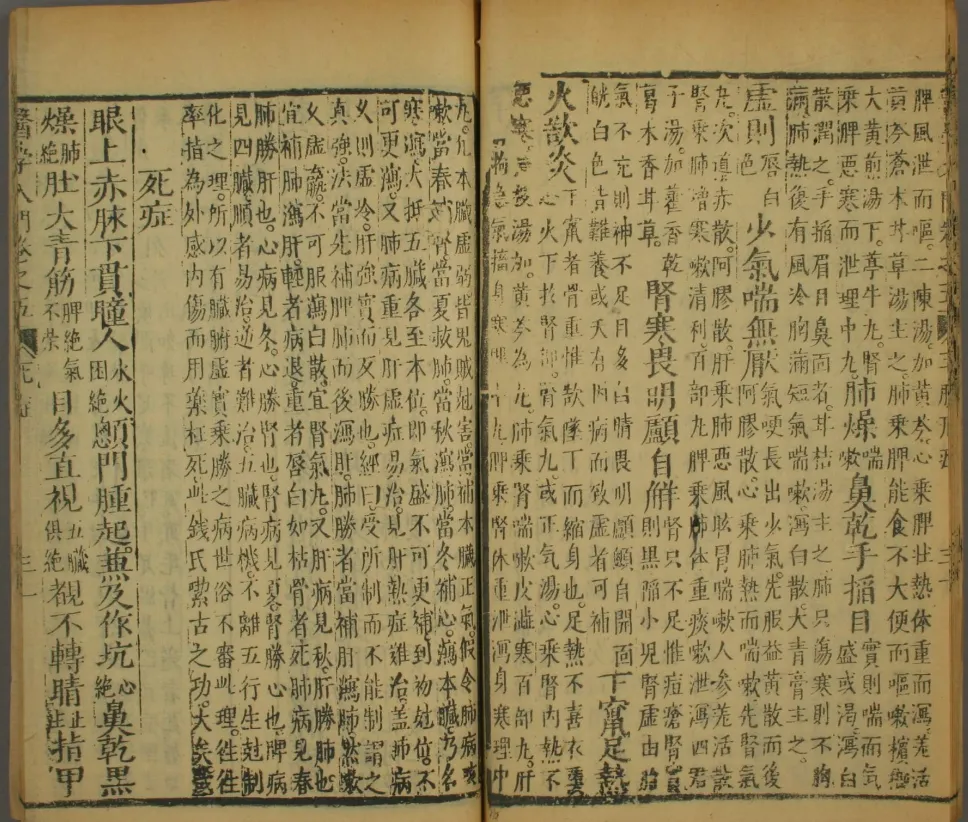 脾風泄而嘔。二陳湯加黃芩。心乘脾壯熱体重而瀉。羌活
黃芩蒼朮甘草湯主之。肺乘脾能食不大便而嘔嗽檳榔
大黃煎湯下葶牛丸。腎
乘脾惡寒而泄理中丸。
肺燥喘嗽鼻乾手掐目
實則喘而氣
盛或渴瀉白
散潤之。手掐眉目鼻面者。甘桔湯主之肺只傷寒則不胸
病。肺熱後有風冷胸滿短氣喘嗽。瀉白散大青膏主之。
虛則唇白色少氣喘無厭
氣哽長出少氣。先服益黃散而後
阿膠散。心乘肺熱而喘嗽先瀉心氣
丸。次導赤散。阿膠散。肝乘肺惡風眩冒喘嗽人參羌活散
腎乘肺憎寒嗽清利。百部丸。脾乘肺体重痰嗽泄瀉四君
子湯。加藿香乾
葛木香甘草。
腎寒畏明顱自解
腎只不足惟痘瘡腎實
則黑陷小兒腎虛由胎
氣不充則神不足。目多白睛畏明顱顖自開面
㿠白色皆難養或夭有因病而致虛者可補
下竄足熱
火歆炎
下竄者骨重惟欲墜下而縮身也。足熱不喜衣覆
心火下於腎部也。腎氣丸。或正气湯。心乘腎內熱不
惡寒湯加黃芩為丸。肺乘腎嗽皮澁寒百部丸。肝
拘急氣搐身寒理中丸。脾乘腎体重泄瀉身寒理中
丸。凡本臟虛弱皆鬼賊尅害。當補本臟正氣。假令肺病
嗽。當春補腎。當夏救肺。當秋瀉肺。當冬補心。瀉本臟。乃名
寒瀉。大抵五臟各至本位。即氣盛不可更補。到初尅位。不
可更瀉。又肺病重見肝虛症易治。見肝熱症難治。盖肺病
乆則虛冷。肝強實而反勝也。經曰。受所制而不能制謂之
真強。法當先補脾肺而後瀉肝。肺勝者當補肝瀉肺。然嗽
乆虛羸。不可服瀉白散。宜腎氣丸。又肝病見秋。肝勝肺也
宜補肺瀉肝。輕者病退。重者唇白如枯骨者死。肺病見春
肺勝肝也。心病見冬。心勝腎也。腎病見夏。腎勝心也。脾病
見四臟。順者易治。逆者難治。五臟病機。不離五行生尅制
化之理。所以有臟腑虛實乘勝之病。世俗不審此理。往往
率指為外感內傷。而用藥枉死。此錢氏潔古之功。大矣哉
死症
眼上赤脉下貫瞳人水火困絕顖門腫起兼及作坑心絕鼻乾黑
燥肺絕肚大青筋脾絕氣不榮目多直視五臟俱絕覩不轉睛止指甲
醫學入門卷之五